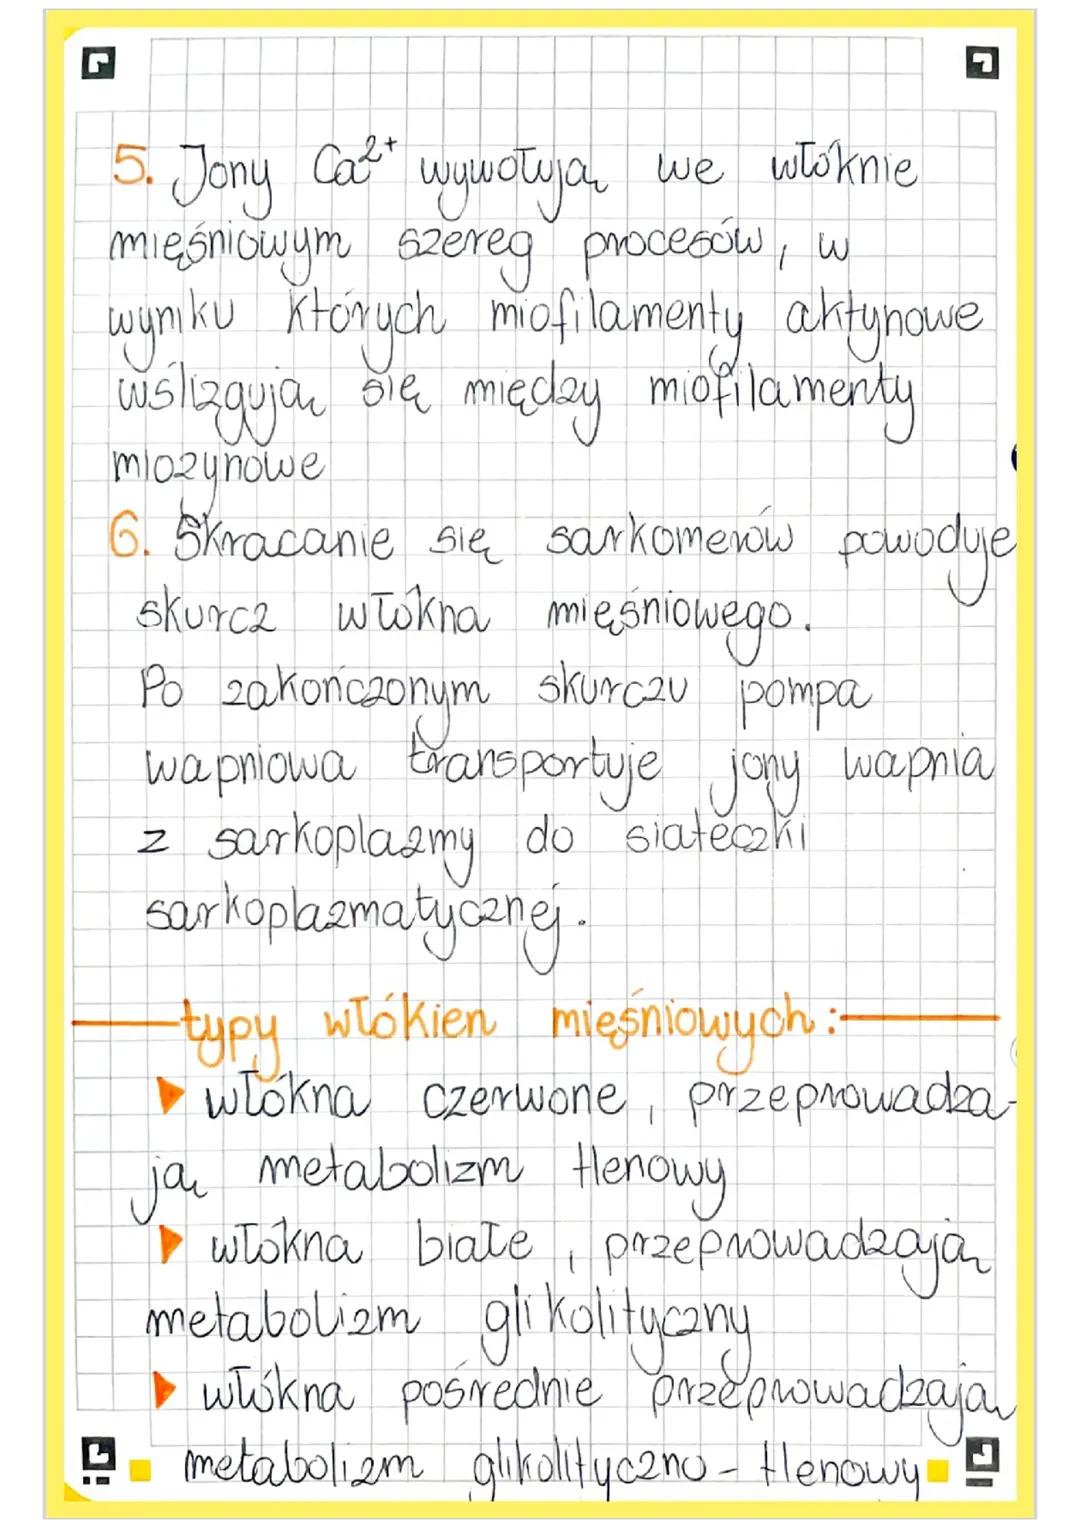 5. Jony Ca²⁺ wywołują we włóknie
mięśniowym szereg procesów, w
wyniku których miofilamenty aktynowe
wślizgują się między miofilamenty
miozynowe
6. Skracanie się sarkomerów powoduje
skurcz włókna mięśniowego.
Po zakończonym skurczu pompa
wapniowa transportuje jony wapnia
z sarkoplazmy do siateczki
sarkoplazmatycznej.
typy włókien mięśniowych:
▶ włókna czerwone, przeprowadza-
ją metabolizm tlenowy
▶ włókna białe, przeprowadzają
metabolizm glikolityczny
▶ włókna pośrednie przeprowadzają
metabolizm glikolityczno-tlenowy